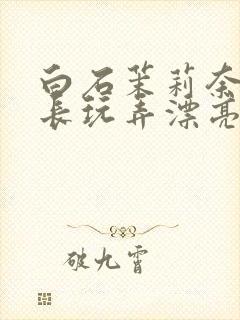 白石茉莉奈
长玩弄漂亮
破九霄